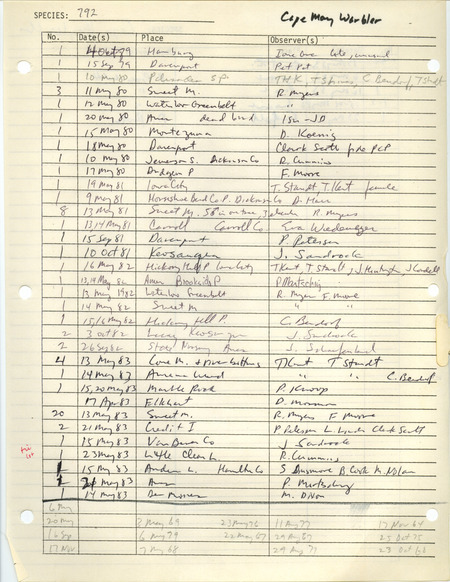 SPECIES: 792 Cape May Warbler
No. Date(s) Place Observer(s)
1 4 Oct 79 Hamburg late, unusual
1 15 Sep 79 Davenport Pet Pet
1 10 May 80 S.P. THK, T Shires, C Bendorf, T Staudt
3 11 May 80 Sweet M. R. Myers
1 12 May 80 Waterloo Greenbelt "
1 20 May 80 Ames dead bird ISU-JD
1 15 May 80 Montezuma D. Koenig
1 18 May 80 Davenport Clark Scott fide PCP
1 10 May 80 Jemerson S. Dickinson Co R. Cummins
1 17 May 80 Dudgeon P F. Moore
1 19 May 81 Iowa City T. Staudt, T. Kent female
1 9 May 81 Horseshoe Bend Co P. Dickinson Co D. Harr
8 13 May 81 Sweet M, 5♂ in one tree, 3 elsewhere R. Myers
1 13,14 May 81 Carroll Carroll Co Eva Wiedemeyer
1 15 Sep 81 Davenport P. Petersen
1 10 Oct 81 Keosauqua J. Sandrock
1 16 May 82 Hickory Hill P Iowa City T Kent, T Staudt, J Huntington, J Cardell
1 13,14 May 82 Ames Brookside P P Martsching
1 13 May 1982 Waterloo Greenbelt R. Myers F. Moore
1 14 May 82 Sweet M " "
1 15,16 May 82 Hickory Hill P. C. Bendorf
2 3 Oct 82 Lacey Keosauqua J. Sandrock
2 26 Sep 82 State Nursery Ames
4 13 May 83 Cone M. & river bottoms T Kent T Staudt
1 14 May 83 Amana Woods " " C. Bendorf
1 15, 20 May 83 Marble Rock P. Knoop
17 Apr 83 Elkhart D. Mooreman
20 13 May 83 Sweet M. R. Myers F Moore
2 21 May 83 Credit I P Petersen L. Linder Clark Scott
1 15 May 83 Van Buren Co J Sandrock
1 23 May 83 Little Clear L R. Cummins
1 15 May 83 Anderson L. Hamilton Co S Dinsmore B. Cook M. Nolan
2 21 May 83 Ames P. Martsching
1 14 May 83 Des Moines M. Dixon
6 May
20 May 2 May 69 23 May 76 11 Aug 77 17 Nov 64
16 Sep 6 May 79 22 May 67 29 Aug 67 25 Oct 75
17 Nov 7 May 68 29 Aug 71 23 Oct 66